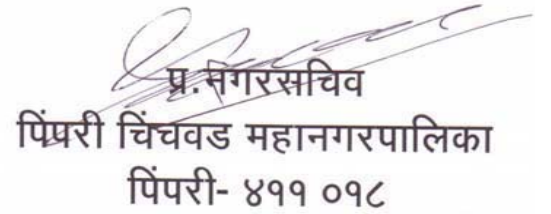 प्र.नगरसचिव
पिंपरी चिंचवड महानगरपालिका
पिंपरी- ४११ ०१८